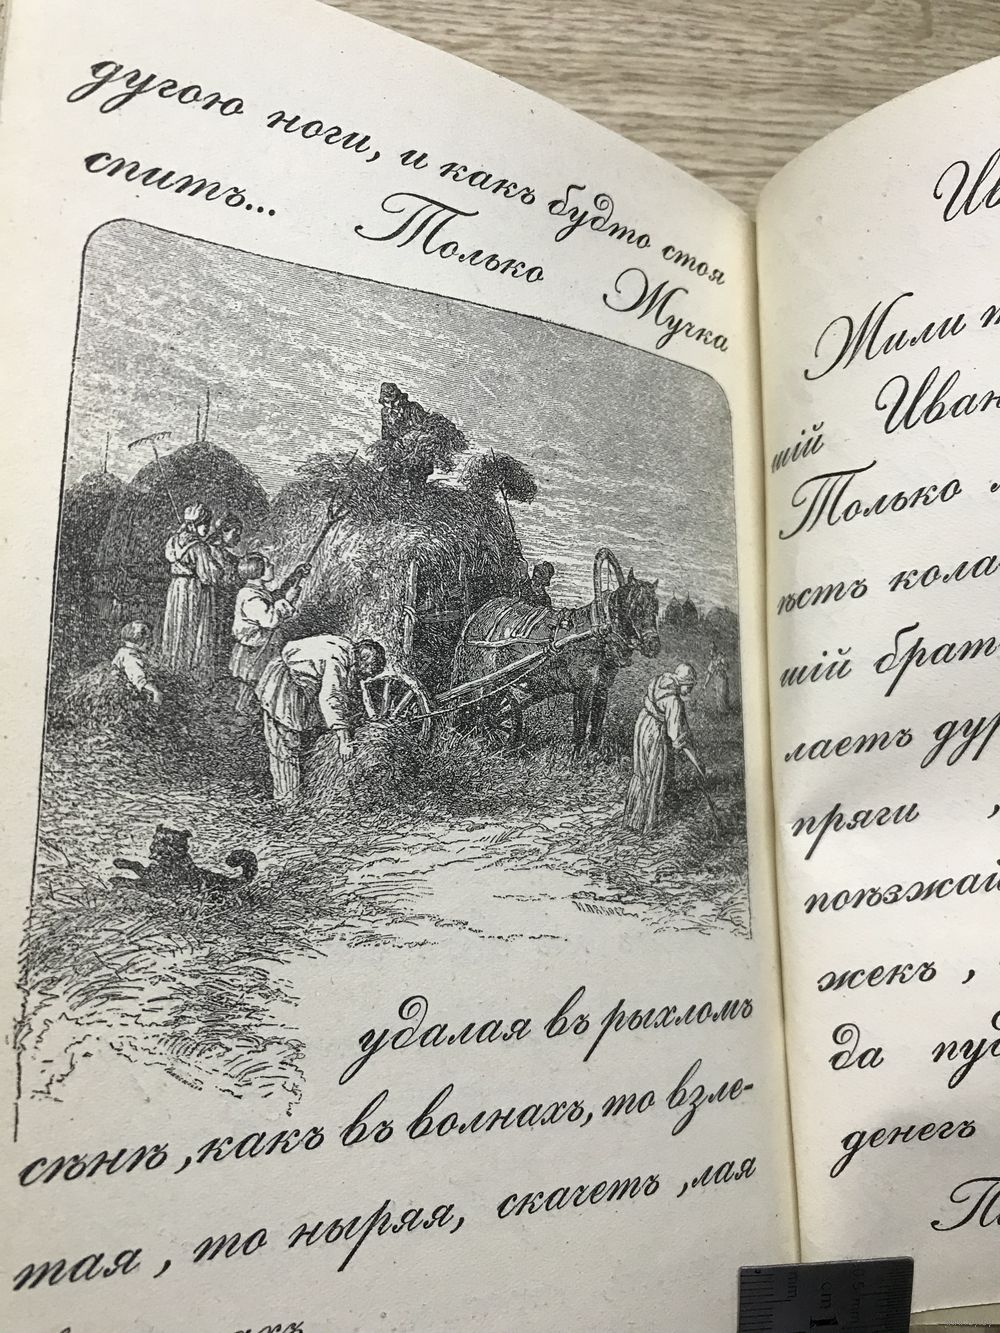 дугою ноги, и какъ будто стоя
спитъ... Только Жучка
удалая въ рыхломъ
сѣнѣ, какъ въ волнахъ, то взле-
тая, то ныряя, скачетъ, лая
Жили
Иван
шій
Только
ѣстъ кола
шій брат
лаетъ дур
пряги ,
поѣзжай
жекъ ,
да пуд
денегъ